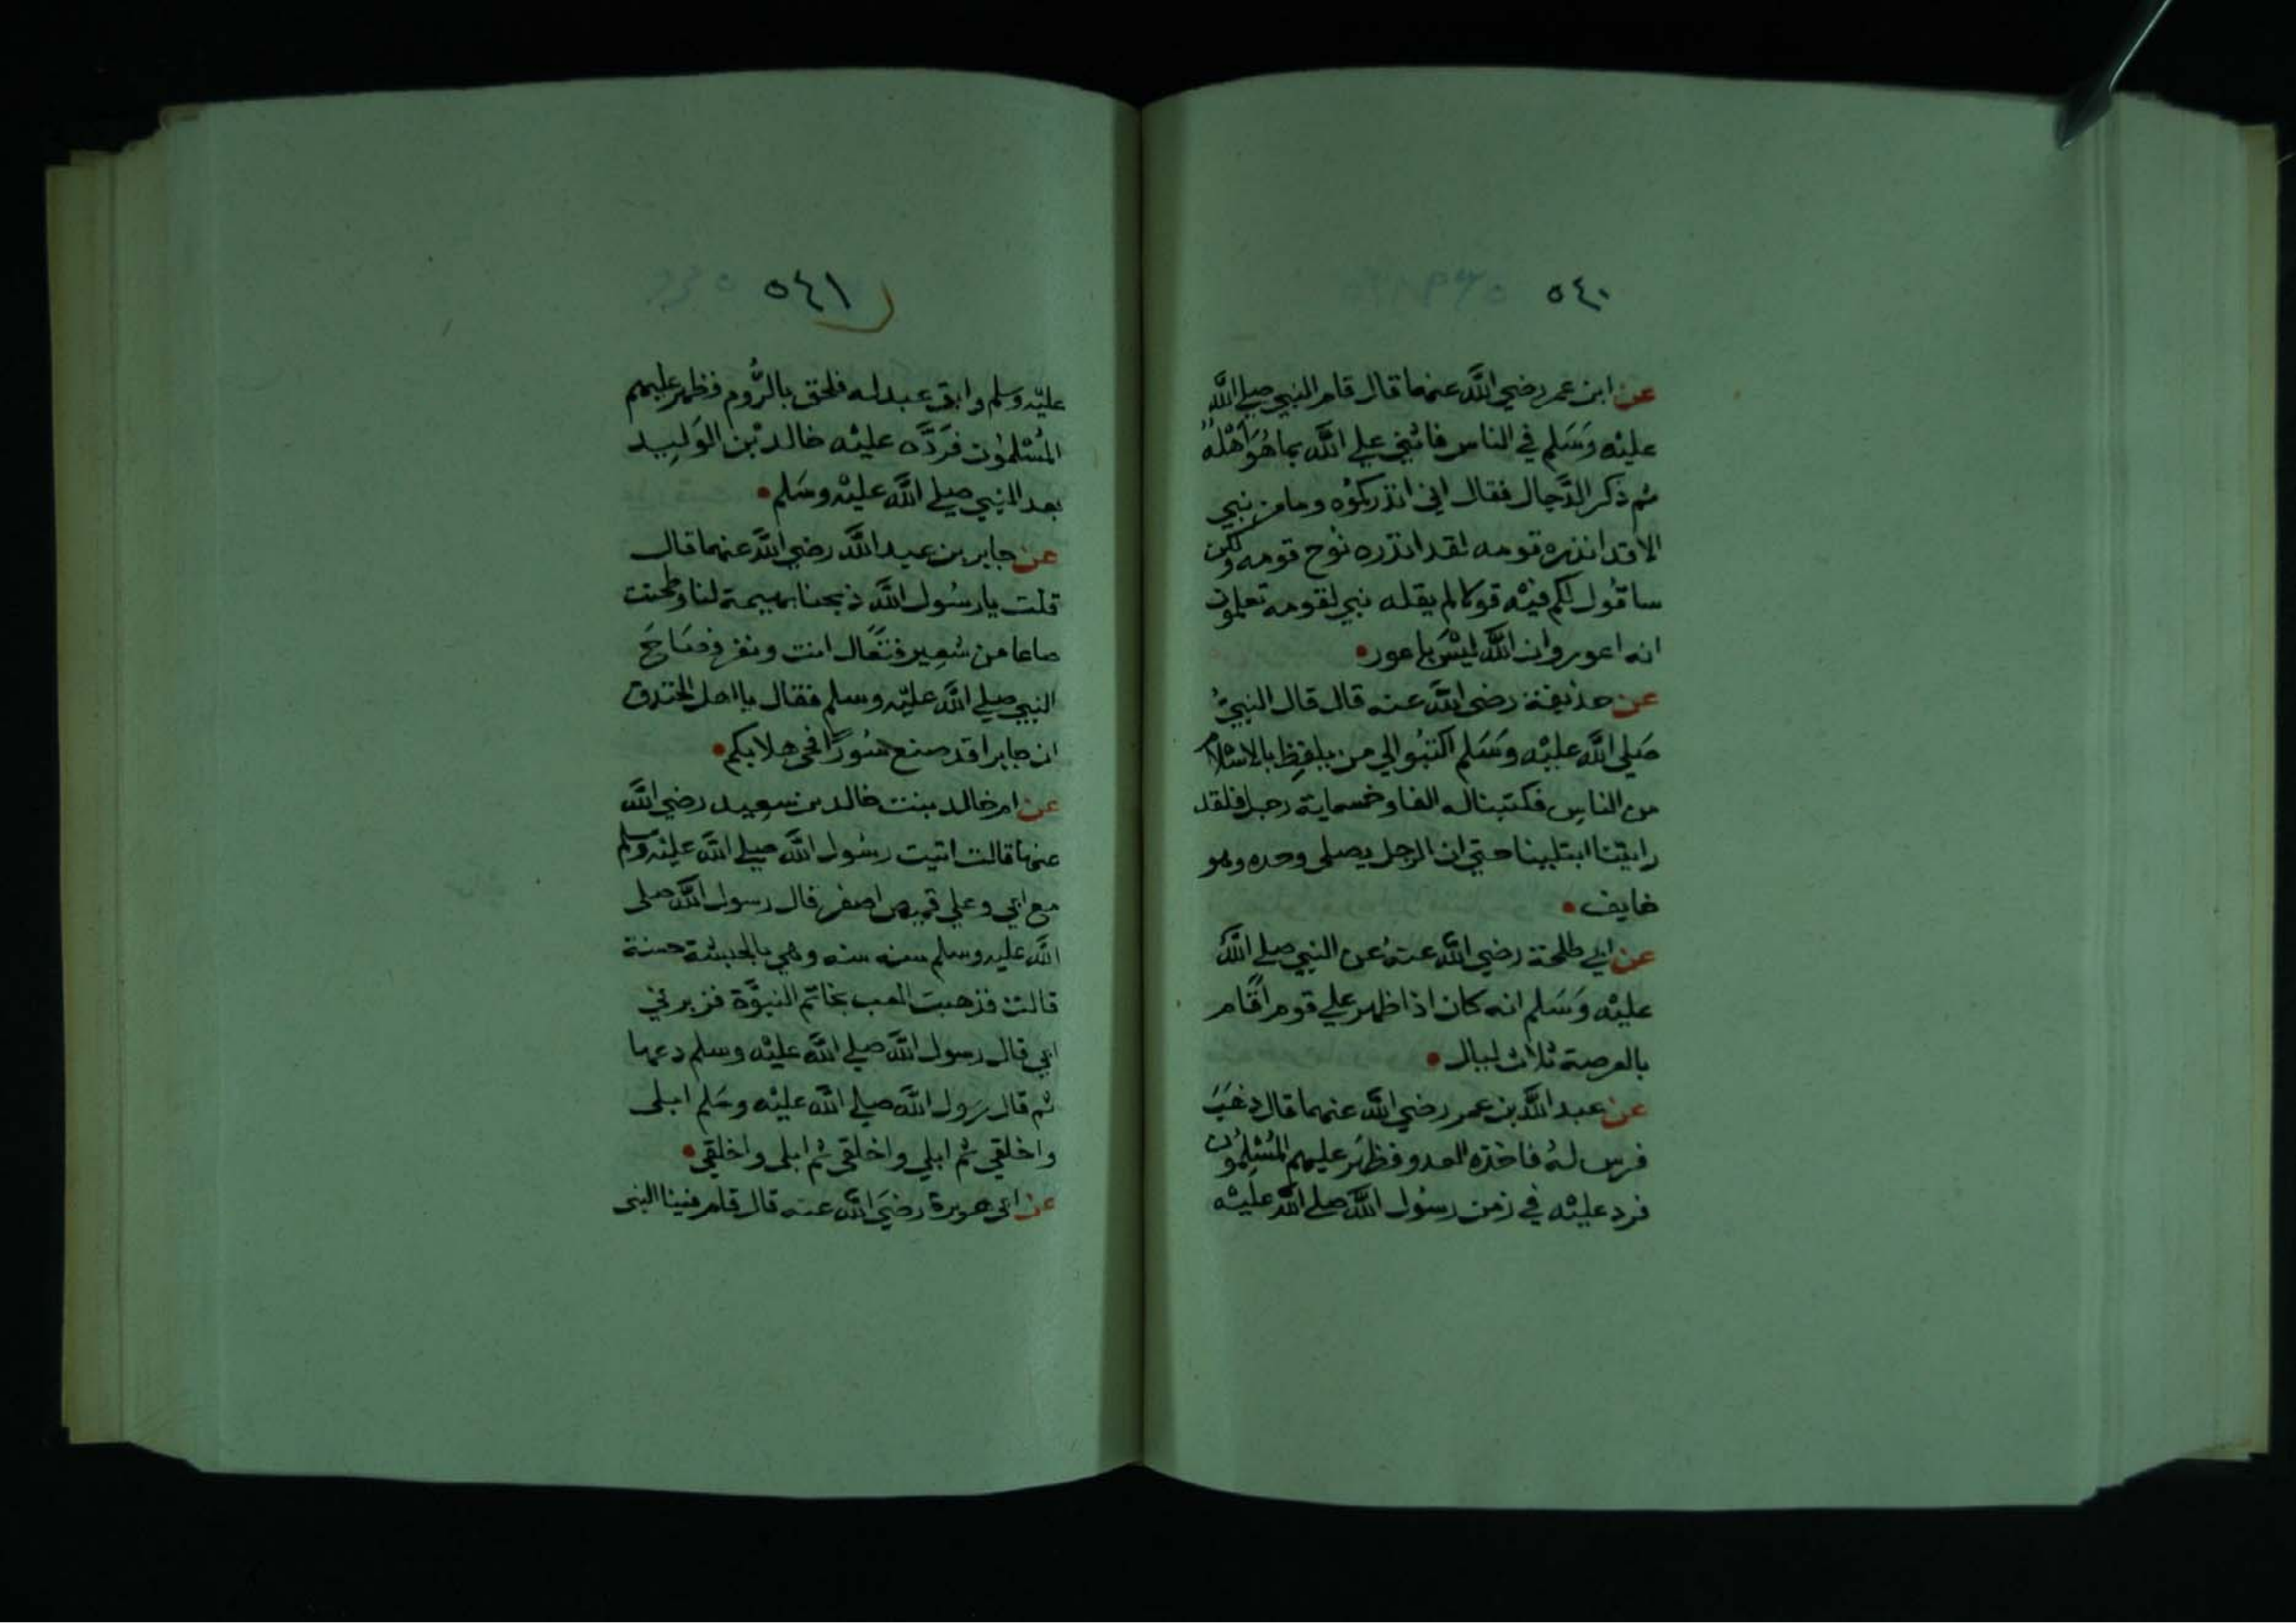 ٥٤٠
عن ابن عمر رضي الله عنهما قال قام النبي صلي الله
عليه وسلم في الناس فاثني علي الله بما هو اهله
ثم ذكر الدجال فقال اني انذركموه وما من نبي
الا قد انذره قومه لقد انذره نوح قومه ولكن
ساقول لكم فيه قولا لم يقله نبي لقومه تعلمون
انه اعور وان الله ليس باعور
عن حذيفة رضي الله عنه قال قال النبي
صلي الله عليه وسلم اكتبوا لي من يلفظ بالاسلام
من الناس فكتبنا له الفا وخمسماية رجل فلقد
رايتنا ابتلينا حتي ان الرجل يصلي وحده وهو
خايف
عن ابي طلحة رضي الله عنه عن النبي صلي الله
عليه وسلم انه كان اذا ظهر علي قوم اقام
بالعرصة ثلاث ليال
عن عبد الله بن عمر رضي الله عنهما قال ذهب
فرس له فاخذه العدو فظهر عليهم المسلمون
فرد عليه في زمن رسول الله صلي الله عليه
٥٤١
عليه وسلم وابق عبد له فلحق بالروم فظهر عليهم
المسلمون فرده عليه خالد بن الوليد
بعد النبي صلي الله عليه وسلم
عن جابر بن عبد الله رضي الله عنهما قال
قلت يا رسول الله ذبحنا بهيمة لنا وطحنت
صاعا من شعير فتعال انت ونفر فصاح
النبي صلي الله عليه وسلم فقال يا اهل الخندق
ان جابرا قد صنع سورا فحي هلا بكم
عن ام خالد بنت خالد بن سعيد رضي الله
عنها قالت اتيت رسول الله صلي الله عليه وسلم
مع ابي وعلي قميص اصفر قال رسول الله صلي
الله عليه وسلم سنه سنه وهي بالحبشة حسنة
قالت فذهبت العب بخاتم النبوة فزبرني
ابي قال رسول الله صلي الله عليه وسلم دعها
ثم قال رسول الله صلي الله عليه وسلم ابلي
واخلقي ثم ابلي واخلقي ثم ابلي واخلقي
عن ابي هريرة رضي الله عنه قال قام فينا النبي